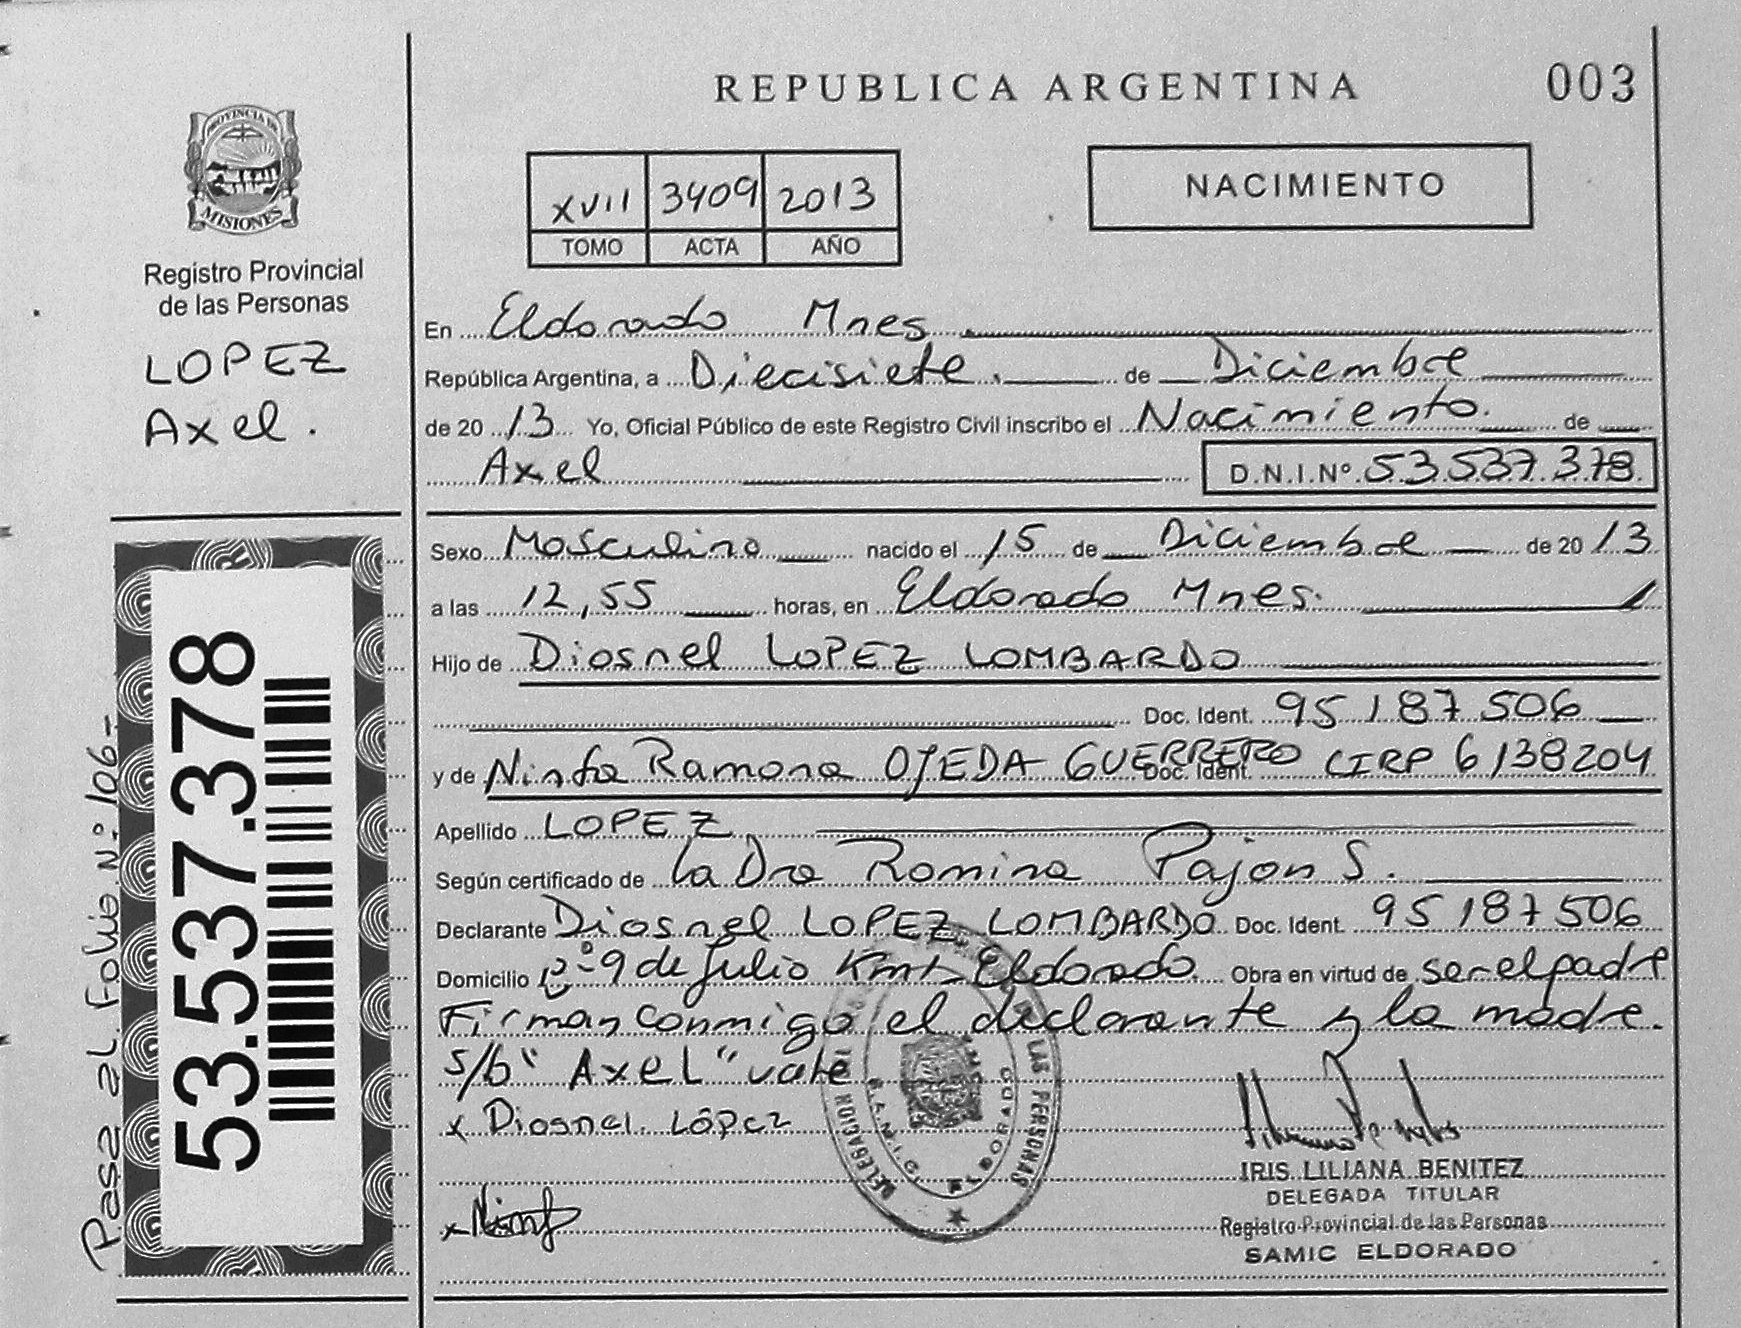 REPUBLICA ARGENTINA
003
PROVINCIA DE
MISIONES
Registro Provincial
de las Personas
LOPEZ
Axel.
XVII 3409 2013
TOMO ACTA AÑO
NACIMIENTO
En Eldorado Mnes
República Argentina, a Diecisiete. de Diciembre
de 20 13 Yo, Oficial Público de este Registro Civil inscribo el Nacimiento. de
Axel D.N.I.Nº 53.537.378
Sexo Masculino nacido el 15 de Diciembre de 20 13
a las 12,55 horas, en Eldorado Mnes.
Hijo de Diosnel LOPEZ LOMBARDO
Doc. Ident. 95 187 506
y de Ninfa Ramona OJEDA GUERRERO Doc. Ident. CIRP 6138204
Apellido LOPEZ
Según certificado de la Dra Romina Pajon S.
Declarante Diosnel LOPEZ LOMBARDO Doc. Ident. 95 187 506
Domicilio Bº 9 de Julio Km1 Eldorado Obra en virtud de ser el padre
Firman conmigo el declarante y la madre.
s/b "AXEL" vale
x Diosnel López
x Ninf
53.537.378
Pasa al Folio Nº 106-
DELEGACION DE LAS PERSONAS
S.A.M.I.C. ELDORADO
IRIS LILIANA BENITEZ
DELEGADA TITULAR
Registro Provincial de las Personas
SAMIC ELDORADO